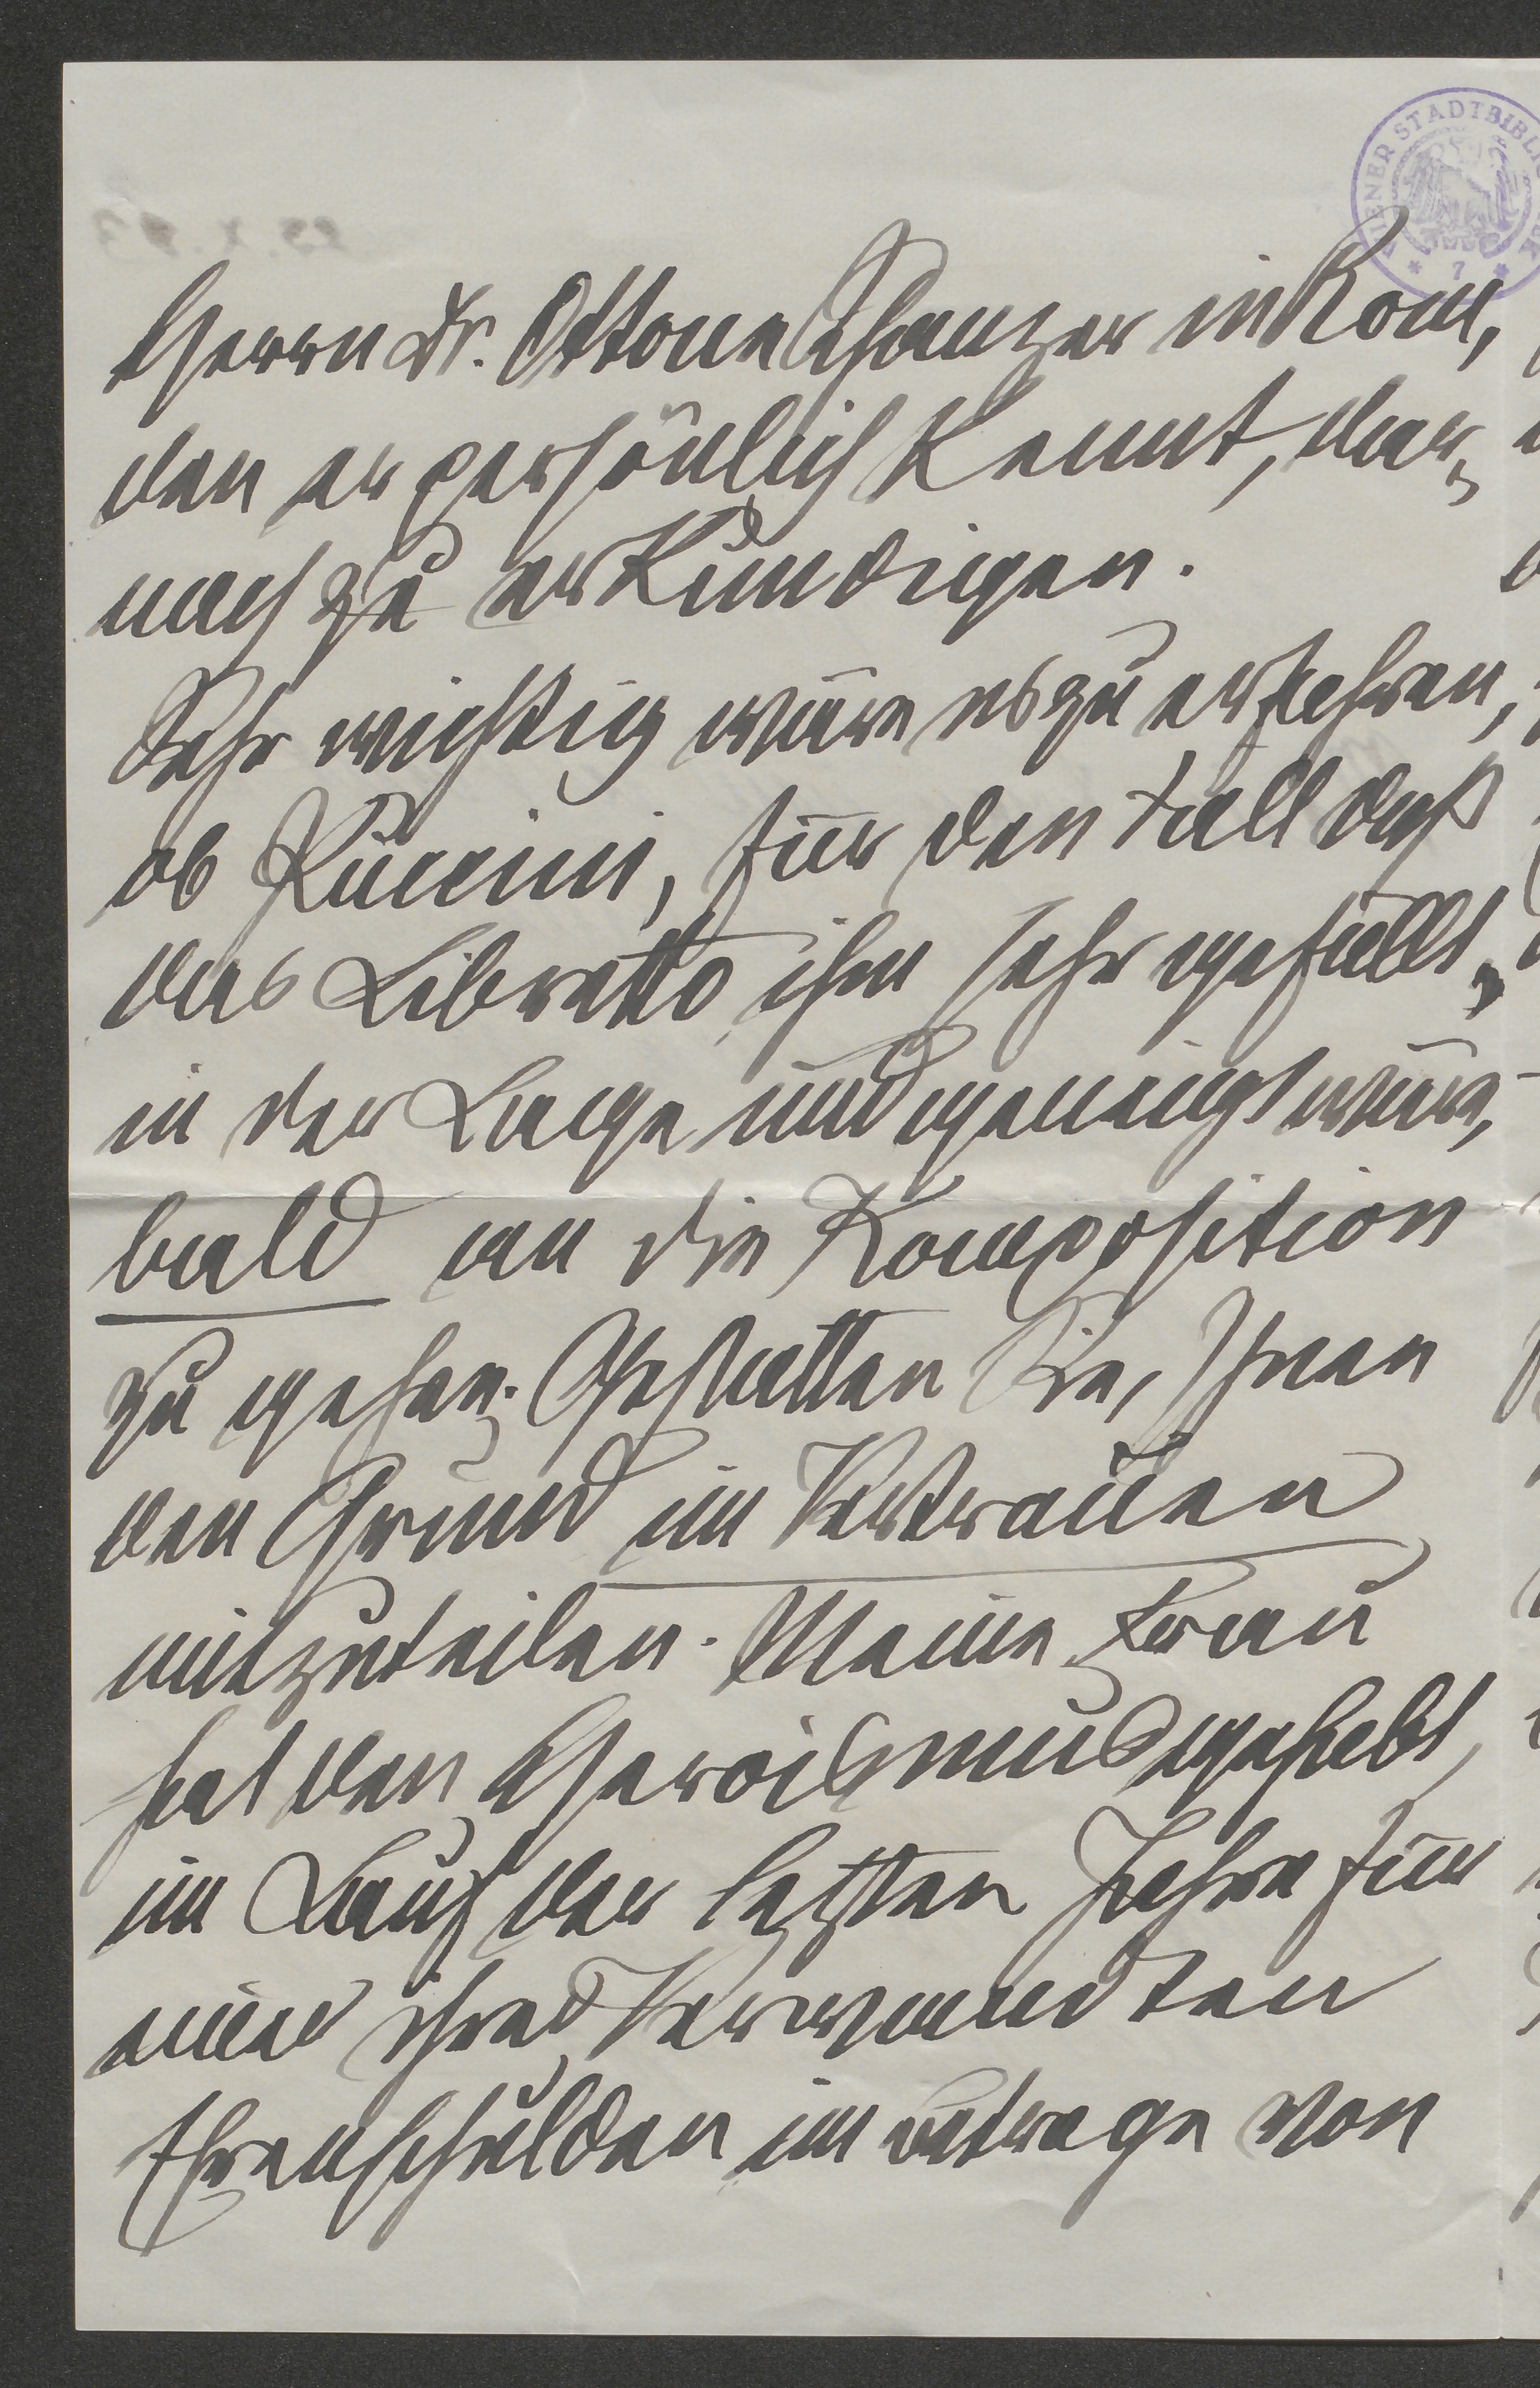 WIENER STADTBIBLIO
* 7 *
Herrn Dr. Ottone Schanzer in Rom,
den er persönlich kennt, dar-
nach zu erkundigen.
Sehr wichtig wäre es zu erfahren,
ob Puccini, für den Fall daß
das Libretto ihm sehr gefällt,
in der Lage und geneigt wäre,
bald an die Komposition
zu gehen. Gestatten Sie, Ihnen
den Grund im Vertrauen
mitzuteilen. Meine Frau
hat den Heroismus gehabt,
im Lauf der letzten Jahre für
einen ihrer Verwandten
Ehrenschulden im Betrage von